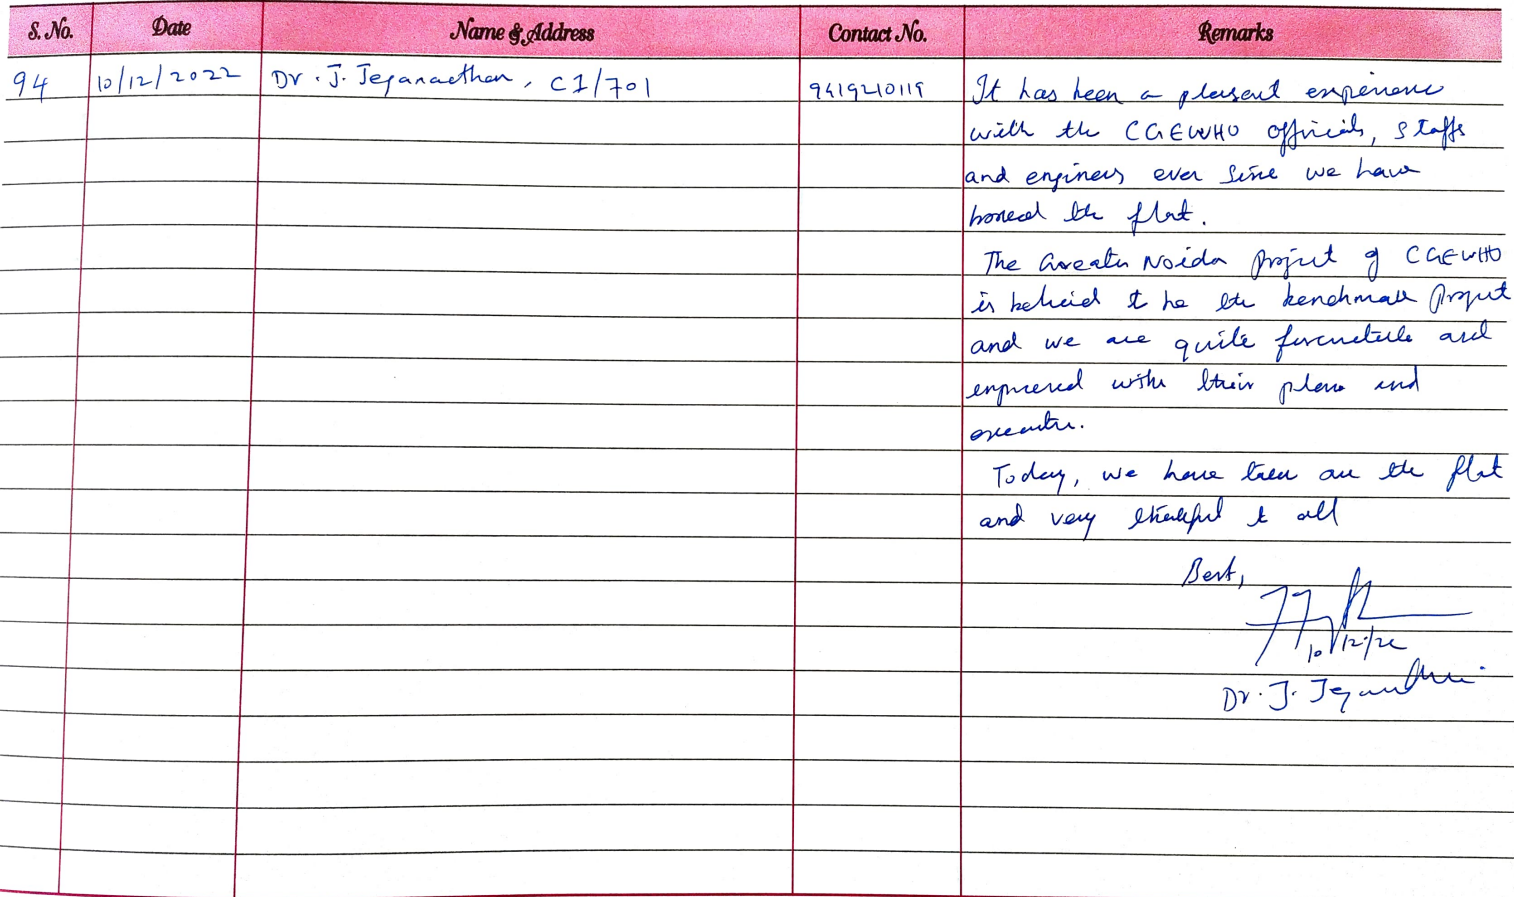 S. No. Date Name & Address Contact No. Remarks
94 10/12/2022 Dr. J. Jeganaethan, C1/701 9419210119 It has been a pleasent experience
with the CGEWHO officials, staffs
and engineers ever since we have
the flat.
The Greater Noida project of CGEWHO
is to be the benchmark project
and we are quite and
with their plans and
Today, we have the flat
and very thankful to all
Best,
10/12/22
Dr. J.